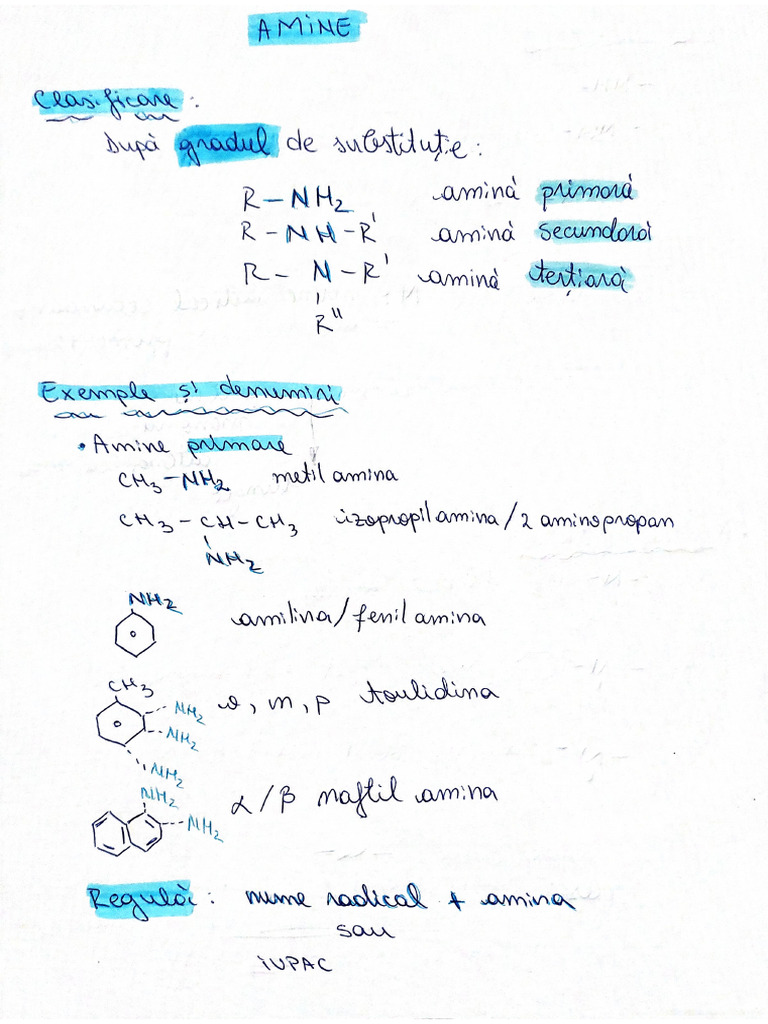 AMINE
Clasificare:
După gradul de substituție:
R-NH2 amină primară
R-NH-R' amină secundară
R-N-R' amină terțiară
R"
Exemple și denumiri
• Amine primare
CH3-NH2 metil amina
CH3-CH-CH3 izopropil amina/2 aminopropan
NH2
NH2
anilina/fenil amina
CH3
NH2
o, m, p toulidina
NH2
NH2
NH2
α/β naftil amina
NH2
Regulă: nume radical + amina
sau
IUPAC